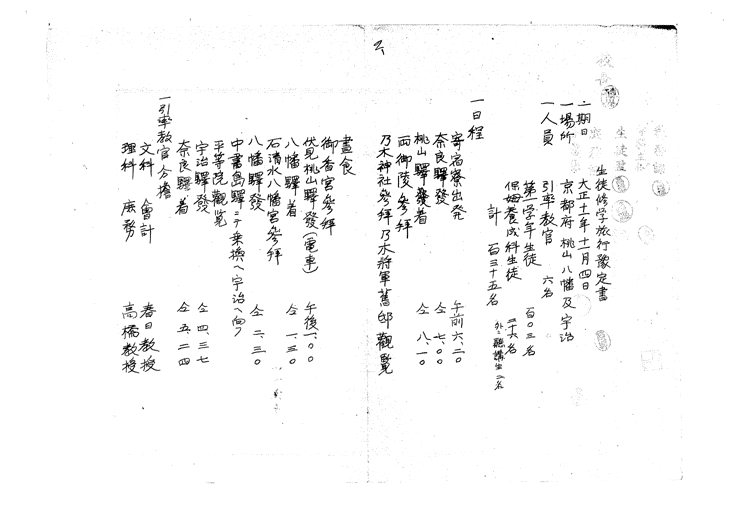 生徒修学旅行豫定書
一、期日 大正十一年十一月四日
一場所 京都府桃山八幡及宇治
一人員 引率教官 六名
第一学年生徒 百〇三名
保姆養成科生徒 二十六名
外ニ聴講生二名
計 百三十五名
一日程
寄宿寮出発 午前六、二〇
奈良驛發 仝 七、〇〇
桃山驛發着 仝 八、一〇
両御陵参拜
乃木神社参拜乃木将軍舊邸觀覧
晝食
御香宮参拜
伏見桃山驛發(電車) 午後一、〇〇
八幡驛着 仝 一、三〇
石清水八幡宮参拜
八幡驛發 仝 二、三〇
中書島驛ニテ乗換ヘ宇治ヘ向フ
平等院觀覧
宇治驛發 仝 四、三七
奈良驛着 仝 五、二四
一引率教官分擔
文科 會計 春日教授
理科 庶務 高橋教授